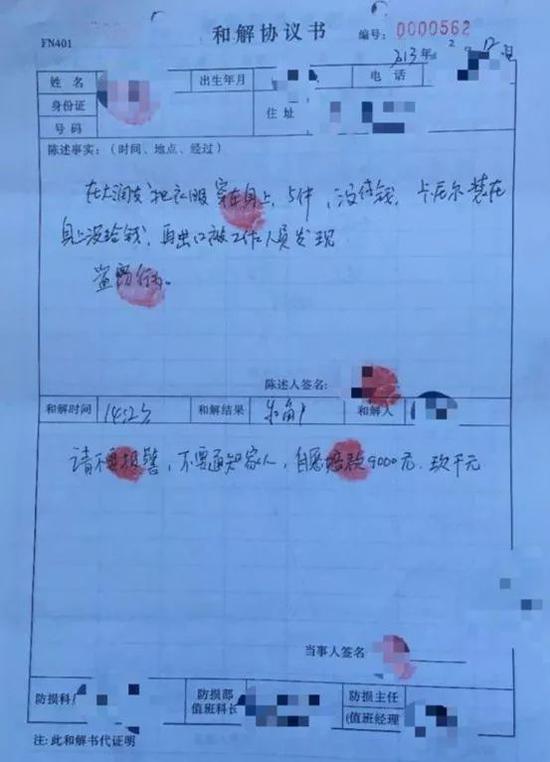 和解协议书
FN401
编号：0000562
2013年2月12日
姓名 出生年月 电话
身份证号码 住址
陈述事实：（时间、地点、经过）
在大润发把衣服穿在身上，5件，没给钱，装在
身上没给钱，再出口被工作人员发现
盗窃行为。
陈述人签名：
和解时间 和解结果 和解人
请不要报警，不要通知家人，自愿赔款9000元.玖千元
当事人签名
防损科 防损部值班科长 防损主任(值班经理
注：此和解书代证明